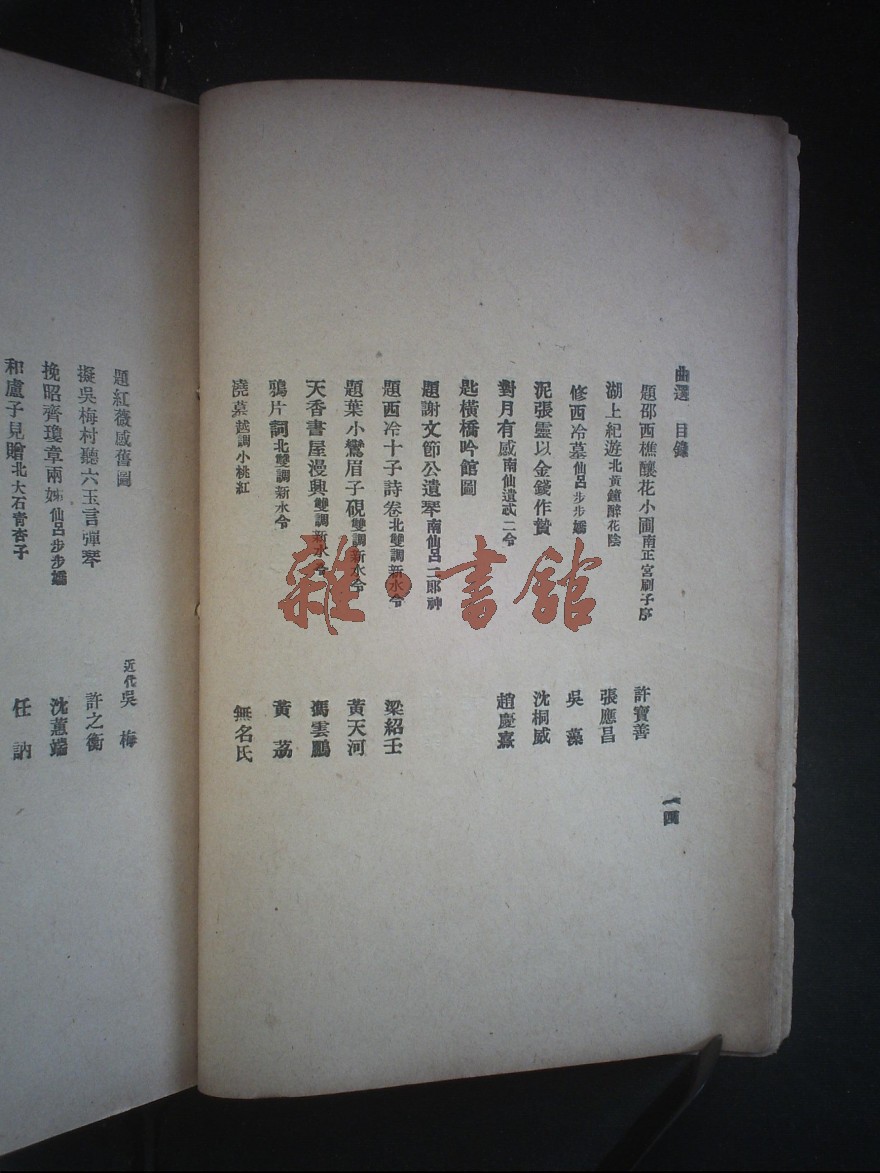 曲選 目錄
題邵西樵釀花小圃南正宮刷子序 許寶善
湖上紀遊北黃鐘醉花陰 張應昌
修西冷墓仙呂步步嬌 吳藻
泥張靈以金錢作贄 沈桐威
對月有感南仙呂二令 趙慶熹
匙橫橋吟館圖
題謝文節公遺琴南仙呂二郎神
題西冷十子詩卷北雙調新水令 梁紹壬
題葉小鸞眉子硯雙調新水令 黃天河
天香書屋漫興雙調新水令 馮雲鵬
鴉片詞北雙調新水令 黃荔
澆墓越調小桃紅 無名氏
一四
題紅薇感舊圖 近代吳梅
擬吳梅村聽六玉言彈琴 許之衡
挽昭齊瓊章兩姊仙呂步步嬌 沈蕙端
和盧子見贈北大石青杏子 任訥
雜·書館